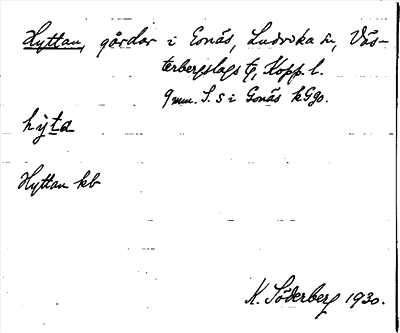 Hyttan, gårdar i Gonäs, Ludvika sn, Väs-
terbergslags tg, Kopp. l.
9 mm. S. S i Gonäs kG90.
hy̆ta
Hyttan kb
K. Söderberg 1930.